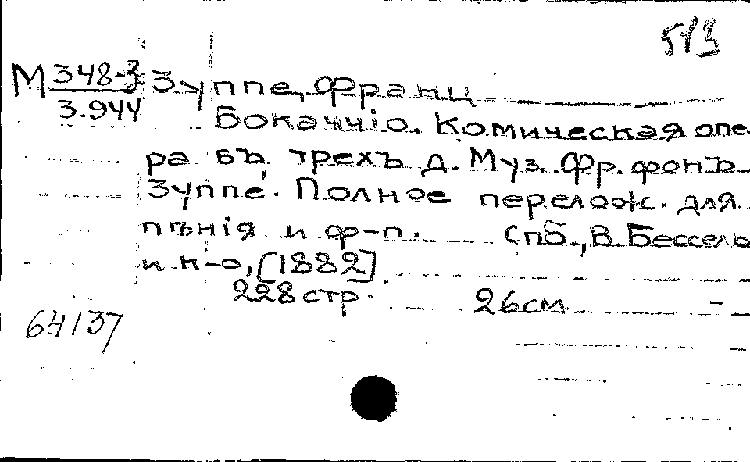 513
М 348-3 Зуппе, Франц
3.944 Бокаччіо. Комическая опе-
ра въ трехъ д. Муз. Фр. фонъ
Зуппе. Полное перелож. для
пѣнія и ф-п. Спб., В. Бессель
и К-о, [1882].
228 стр. 26 см
64137